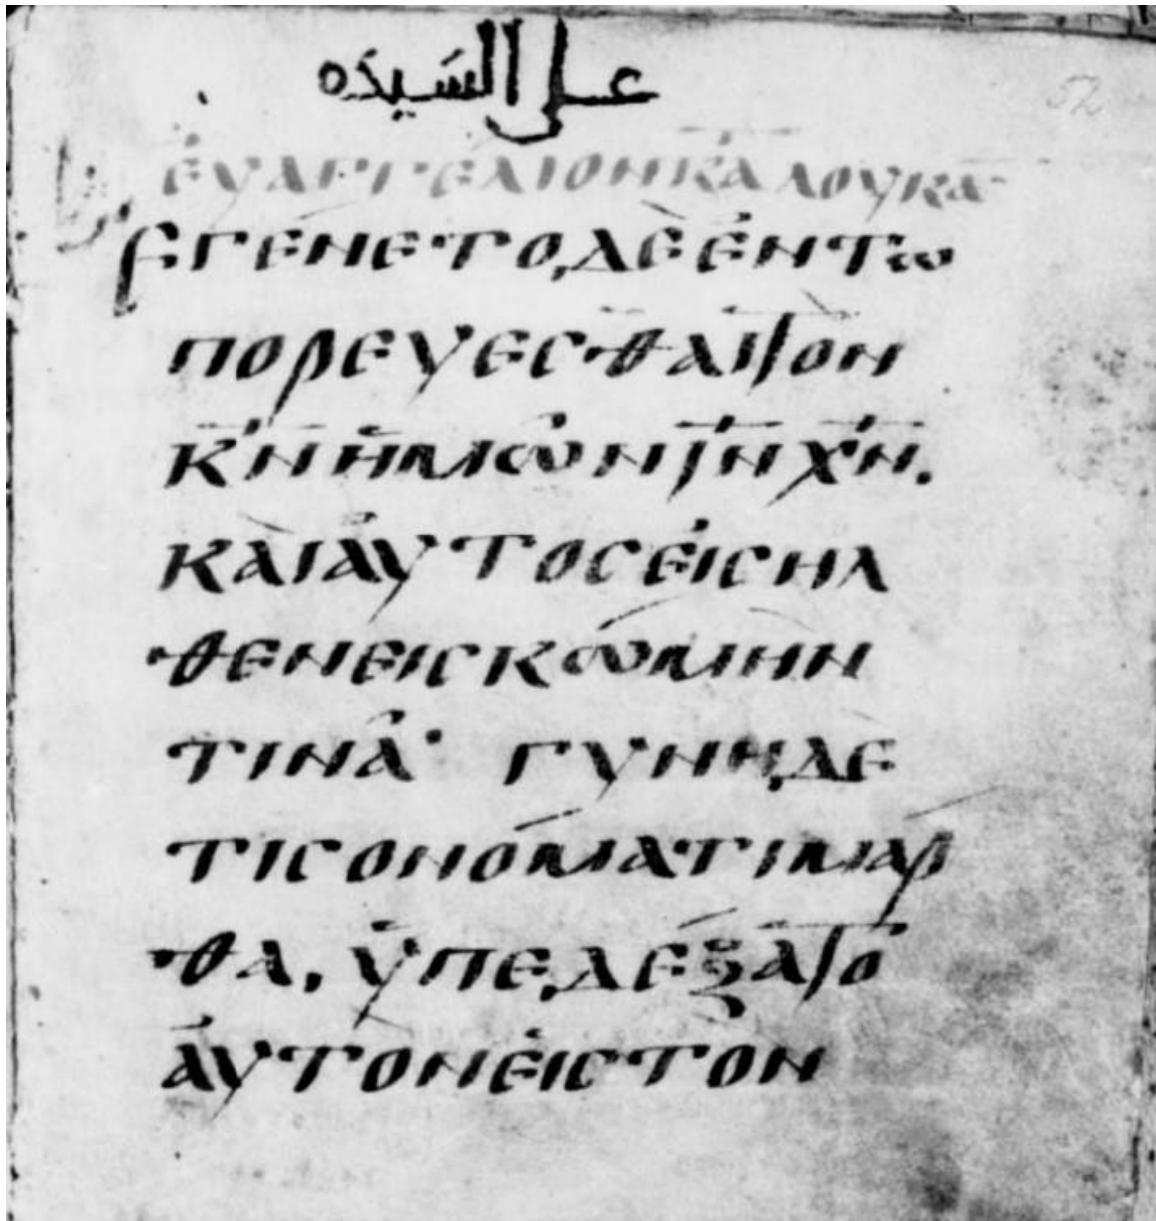 على السيده
52
ἐυαγγέλιον κα̅ λουκα̅
Εγένετο δὲ ἐν τω
πορεύεσθαι τὸν
κ̅ν̅ ἡμῶν ι̅ν̅ χ̅ν̅.
καὶ ἀυτὸς ἐισηλ
θεν εις κώμην
τινά· γυνὴ δέ
τις ονόματι μάρ
θα, ὑπεδέξατο
ἀυτὸν ἐις τὸν